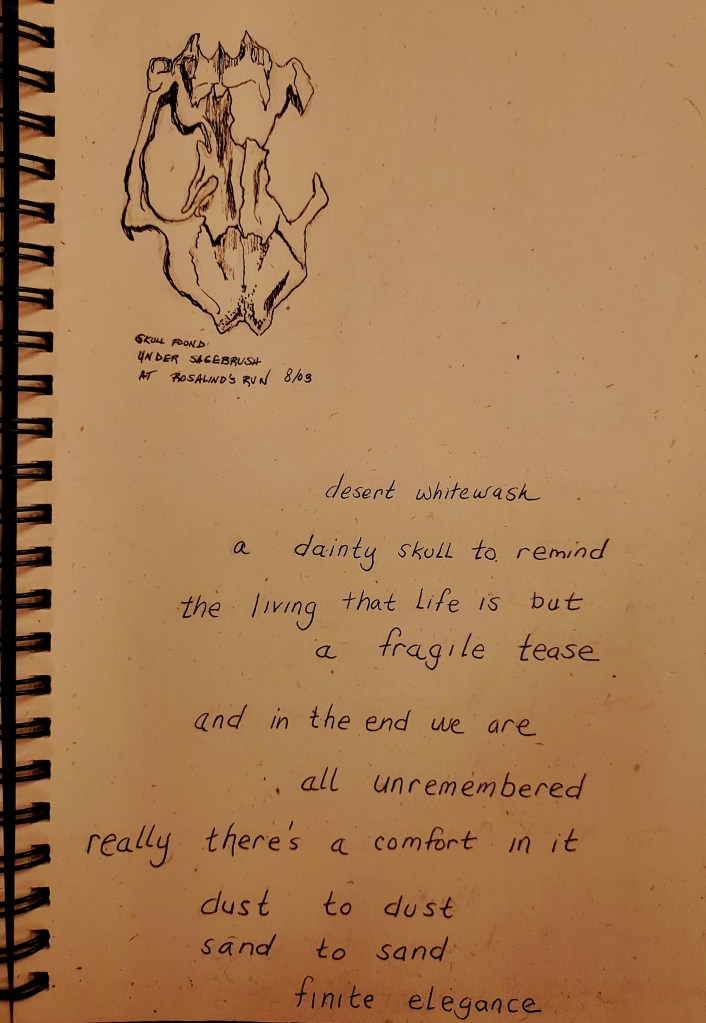 SKULL FOUND
UNDER SAGEBRUSH
AT ROSALIND'S RUN 8/03
desert whitewash
a dainty skull to remind
the living that life is but
a fragile tease
and in the end we are
all unremembered
really there's a comfort in it
dust to dust
sand to sand
finite elegance